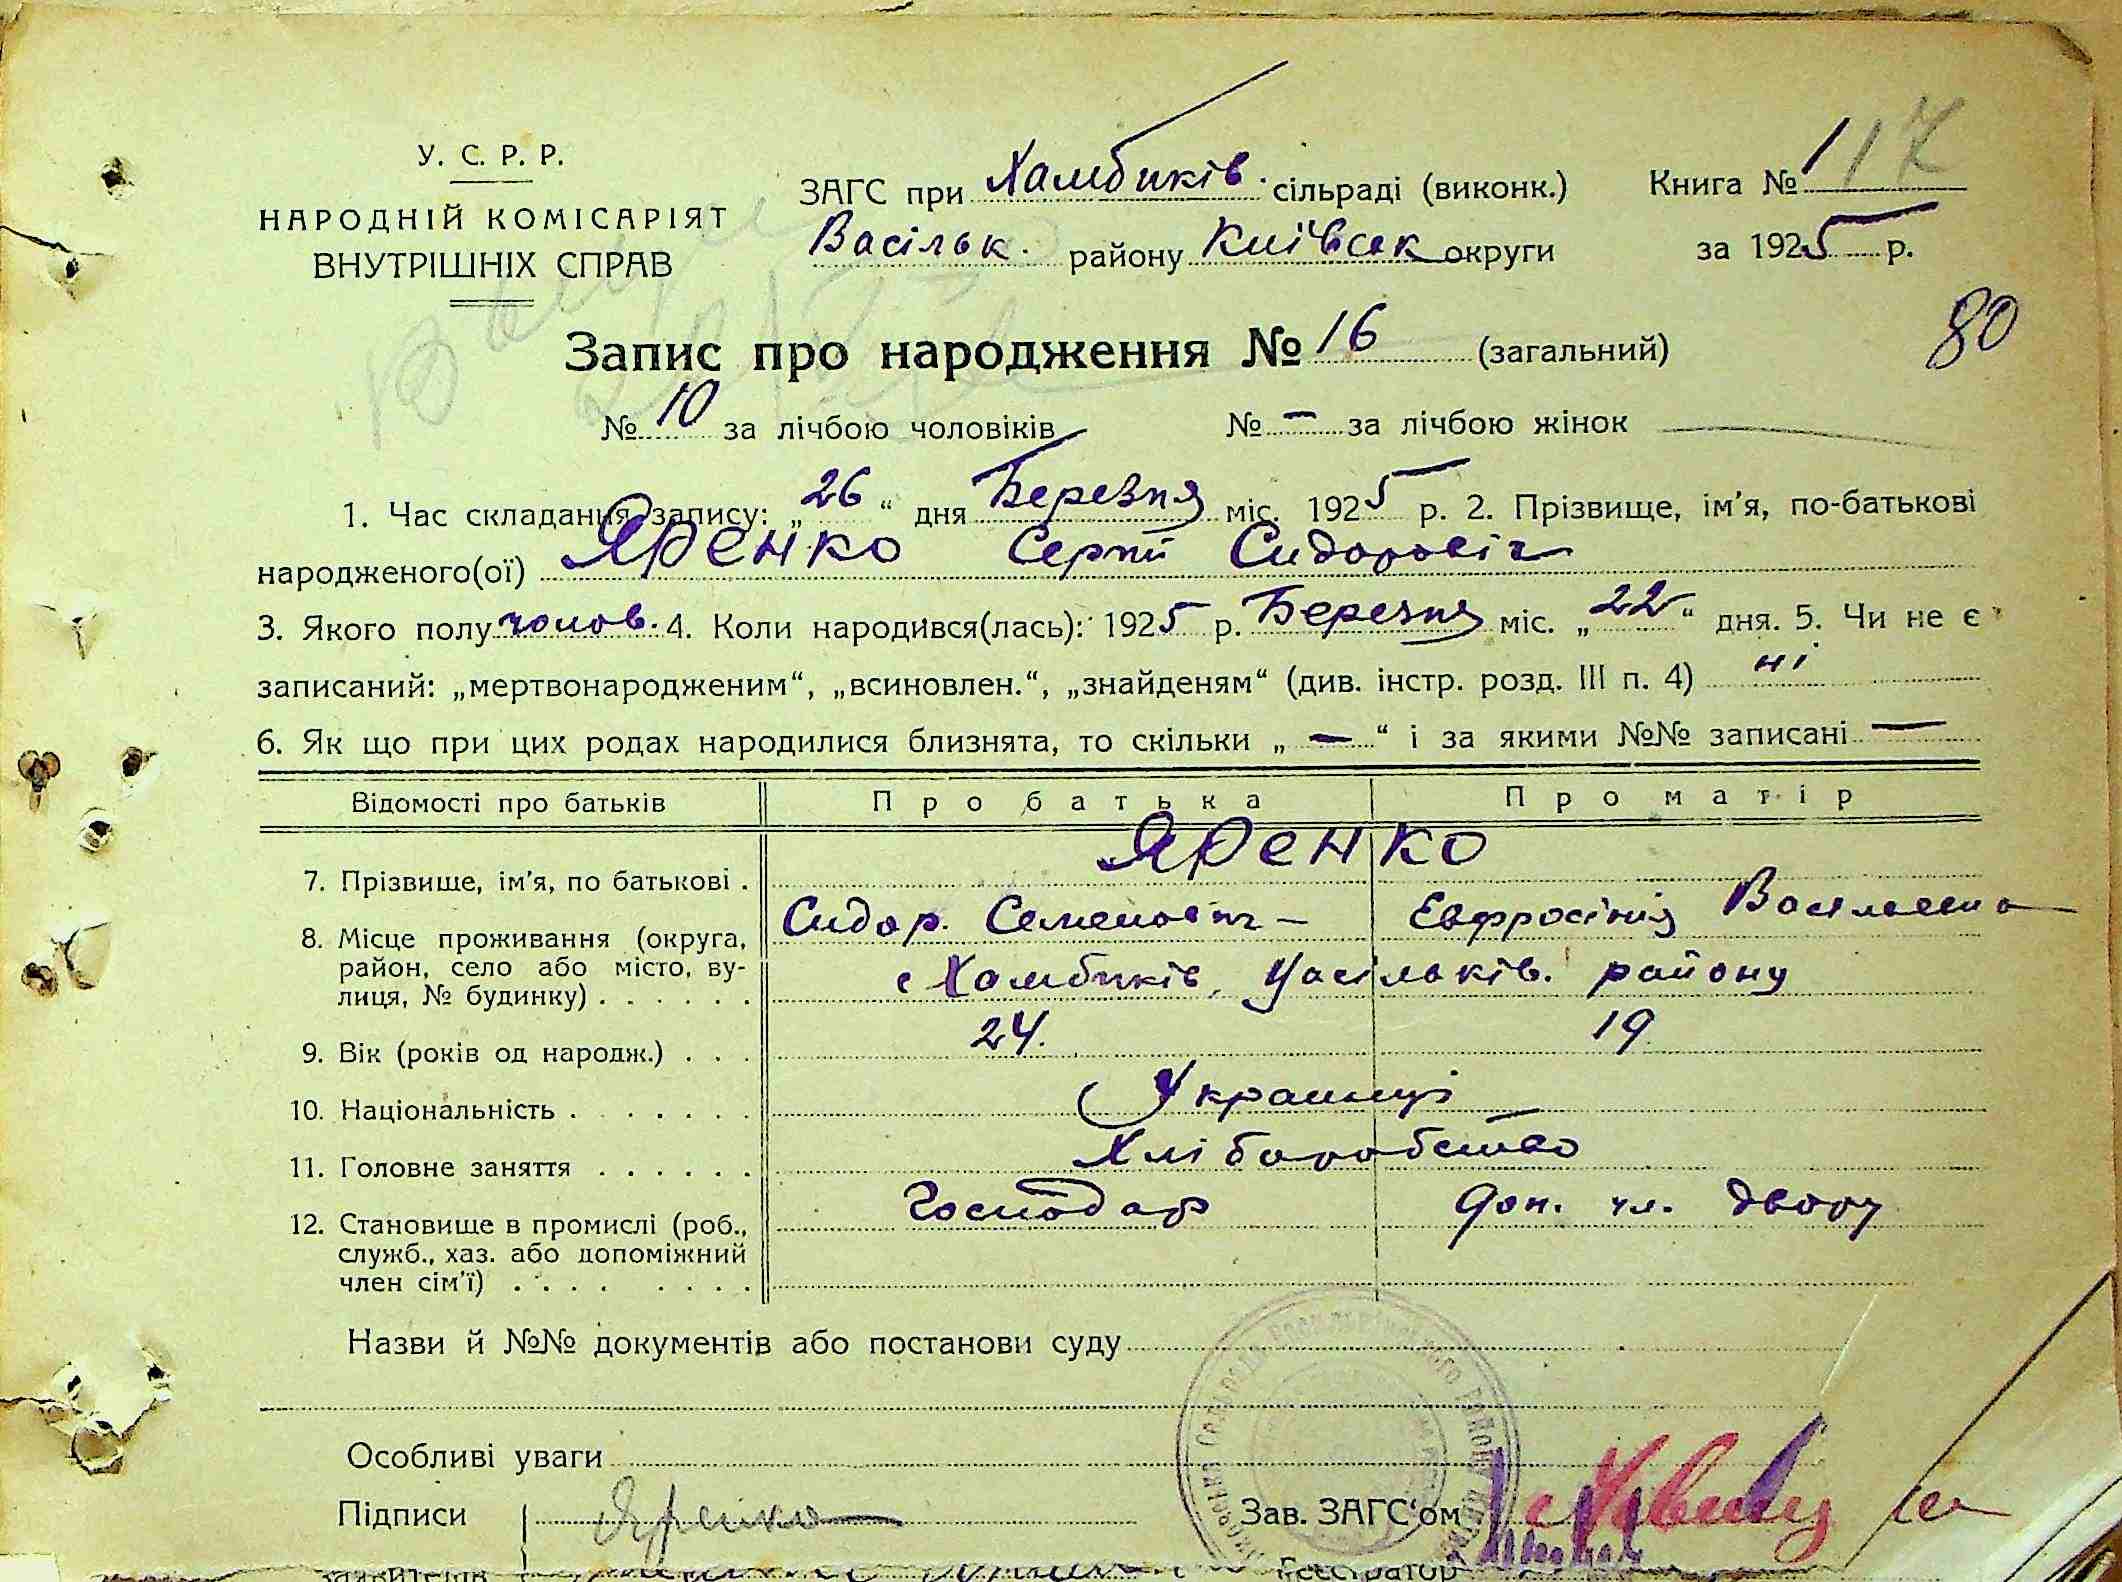 У. С. Р. Р.
НАРОДНІЙ КОМІСАРІЯТ
ВНУТРІШНІХ СПРАВ
ЗАГС при Хамбиків. сільраді (виконк.) Книга № 1 17
Васільк. району Київськ округи за 1925 р.
80
Запис про народження № 16 (загальний)
№ 10 за лічбою чоловіків № — за лічбою жінок
1. Час складання запису: „26“ дня Березня міс. 1925 р. 2. Прізвище, ім’я, по-батькові
народженого(ої) Яренко Сергій Сидоровіч
3. Якого полу чолов. 4. Коли народився(лась): 1925 р. Березня міс. „22“ дня. 5. Чи не є
записаний: „мертвонародженим“, „всиновлен.“, „знайденям“ (див. інстр. розд. III п. 4) ні
6. Як що при цих родах народилися близнята, то скільки „—“ і за якими №№ записані —
Відомості про батьків Про батька Про матір
7. Прізвище, ім’я, по батькові . Яренко
Сидор. Семенович — Евфросінія Василевна
8. Місце проживання (округа,
район, село або місто, ву-
лиця, № будинку) . . . . . . с Хамбиків, Уасільків. району
9. Вік (років од народж.) . . . 24. 19
10. Національність . . . . . . . Украинці
11. Головне заняття . . . . . . Хліборобство
12. Становище в промислі (роб.,
служб., хаз. або допоміжний
член сім’ї) . . . . . . . . Господар доп. чл. двору
Назви й №№ документів або постанови суду
Особливі уваги
Підписи Яренко Зав. ЗАГС‘ом
Реєстратор